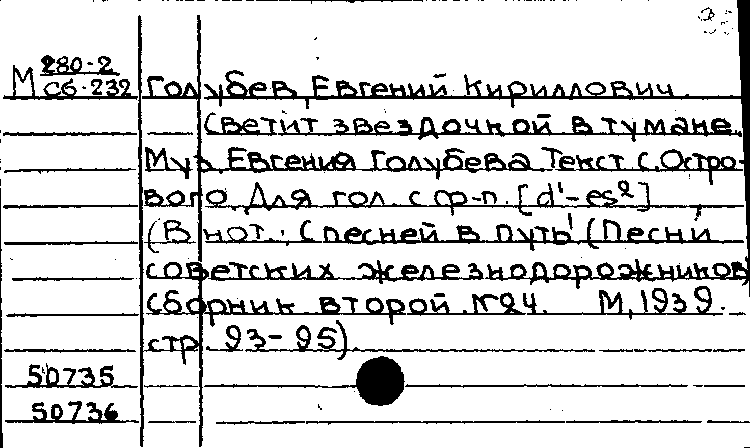 М 280-2
Сб-232
Голубев, Евгений Кириллович.
Светит звездочкой в тумане.
Муз. Евгения Голубева. Текст С. Остро-
вого. Для гол. с ф-п. [d'-es²]
(В нот.: С песней в путь! (Песни
советских железнодорожников)
Сборник второй. №24. М., 1939.
стр. 93-95).
50735
50736